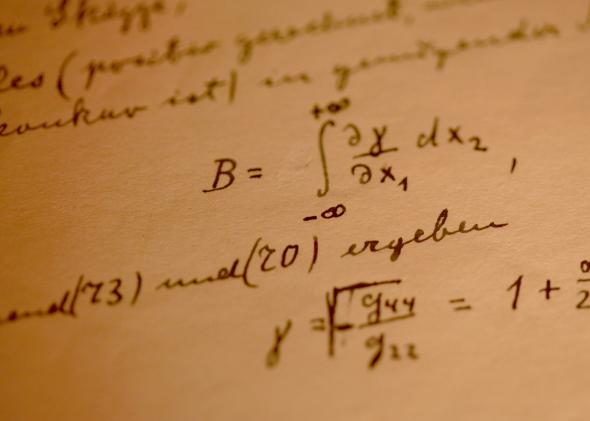 Skizze,
(positiv gerechnet,
konkav ist) in genügender
B = ∫_{-∞}^{+∞} ∂γ/∂x₁ dx₂ ,
(73) und (70) ergeben
γ = √(-g₄₄/g₂₂) = 1 +